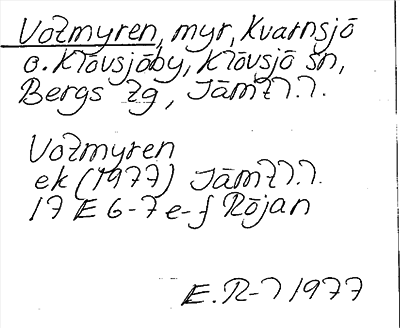 Votmyren, myr, Kvarnsjö
o. Klövsjöby, Klövsjö sn,
Bergs tg, Jämtl.l.
Votmyren
ek (1977) Jämtl.l.
17 E 6-7 e-f Röjan
E.R-l 1977